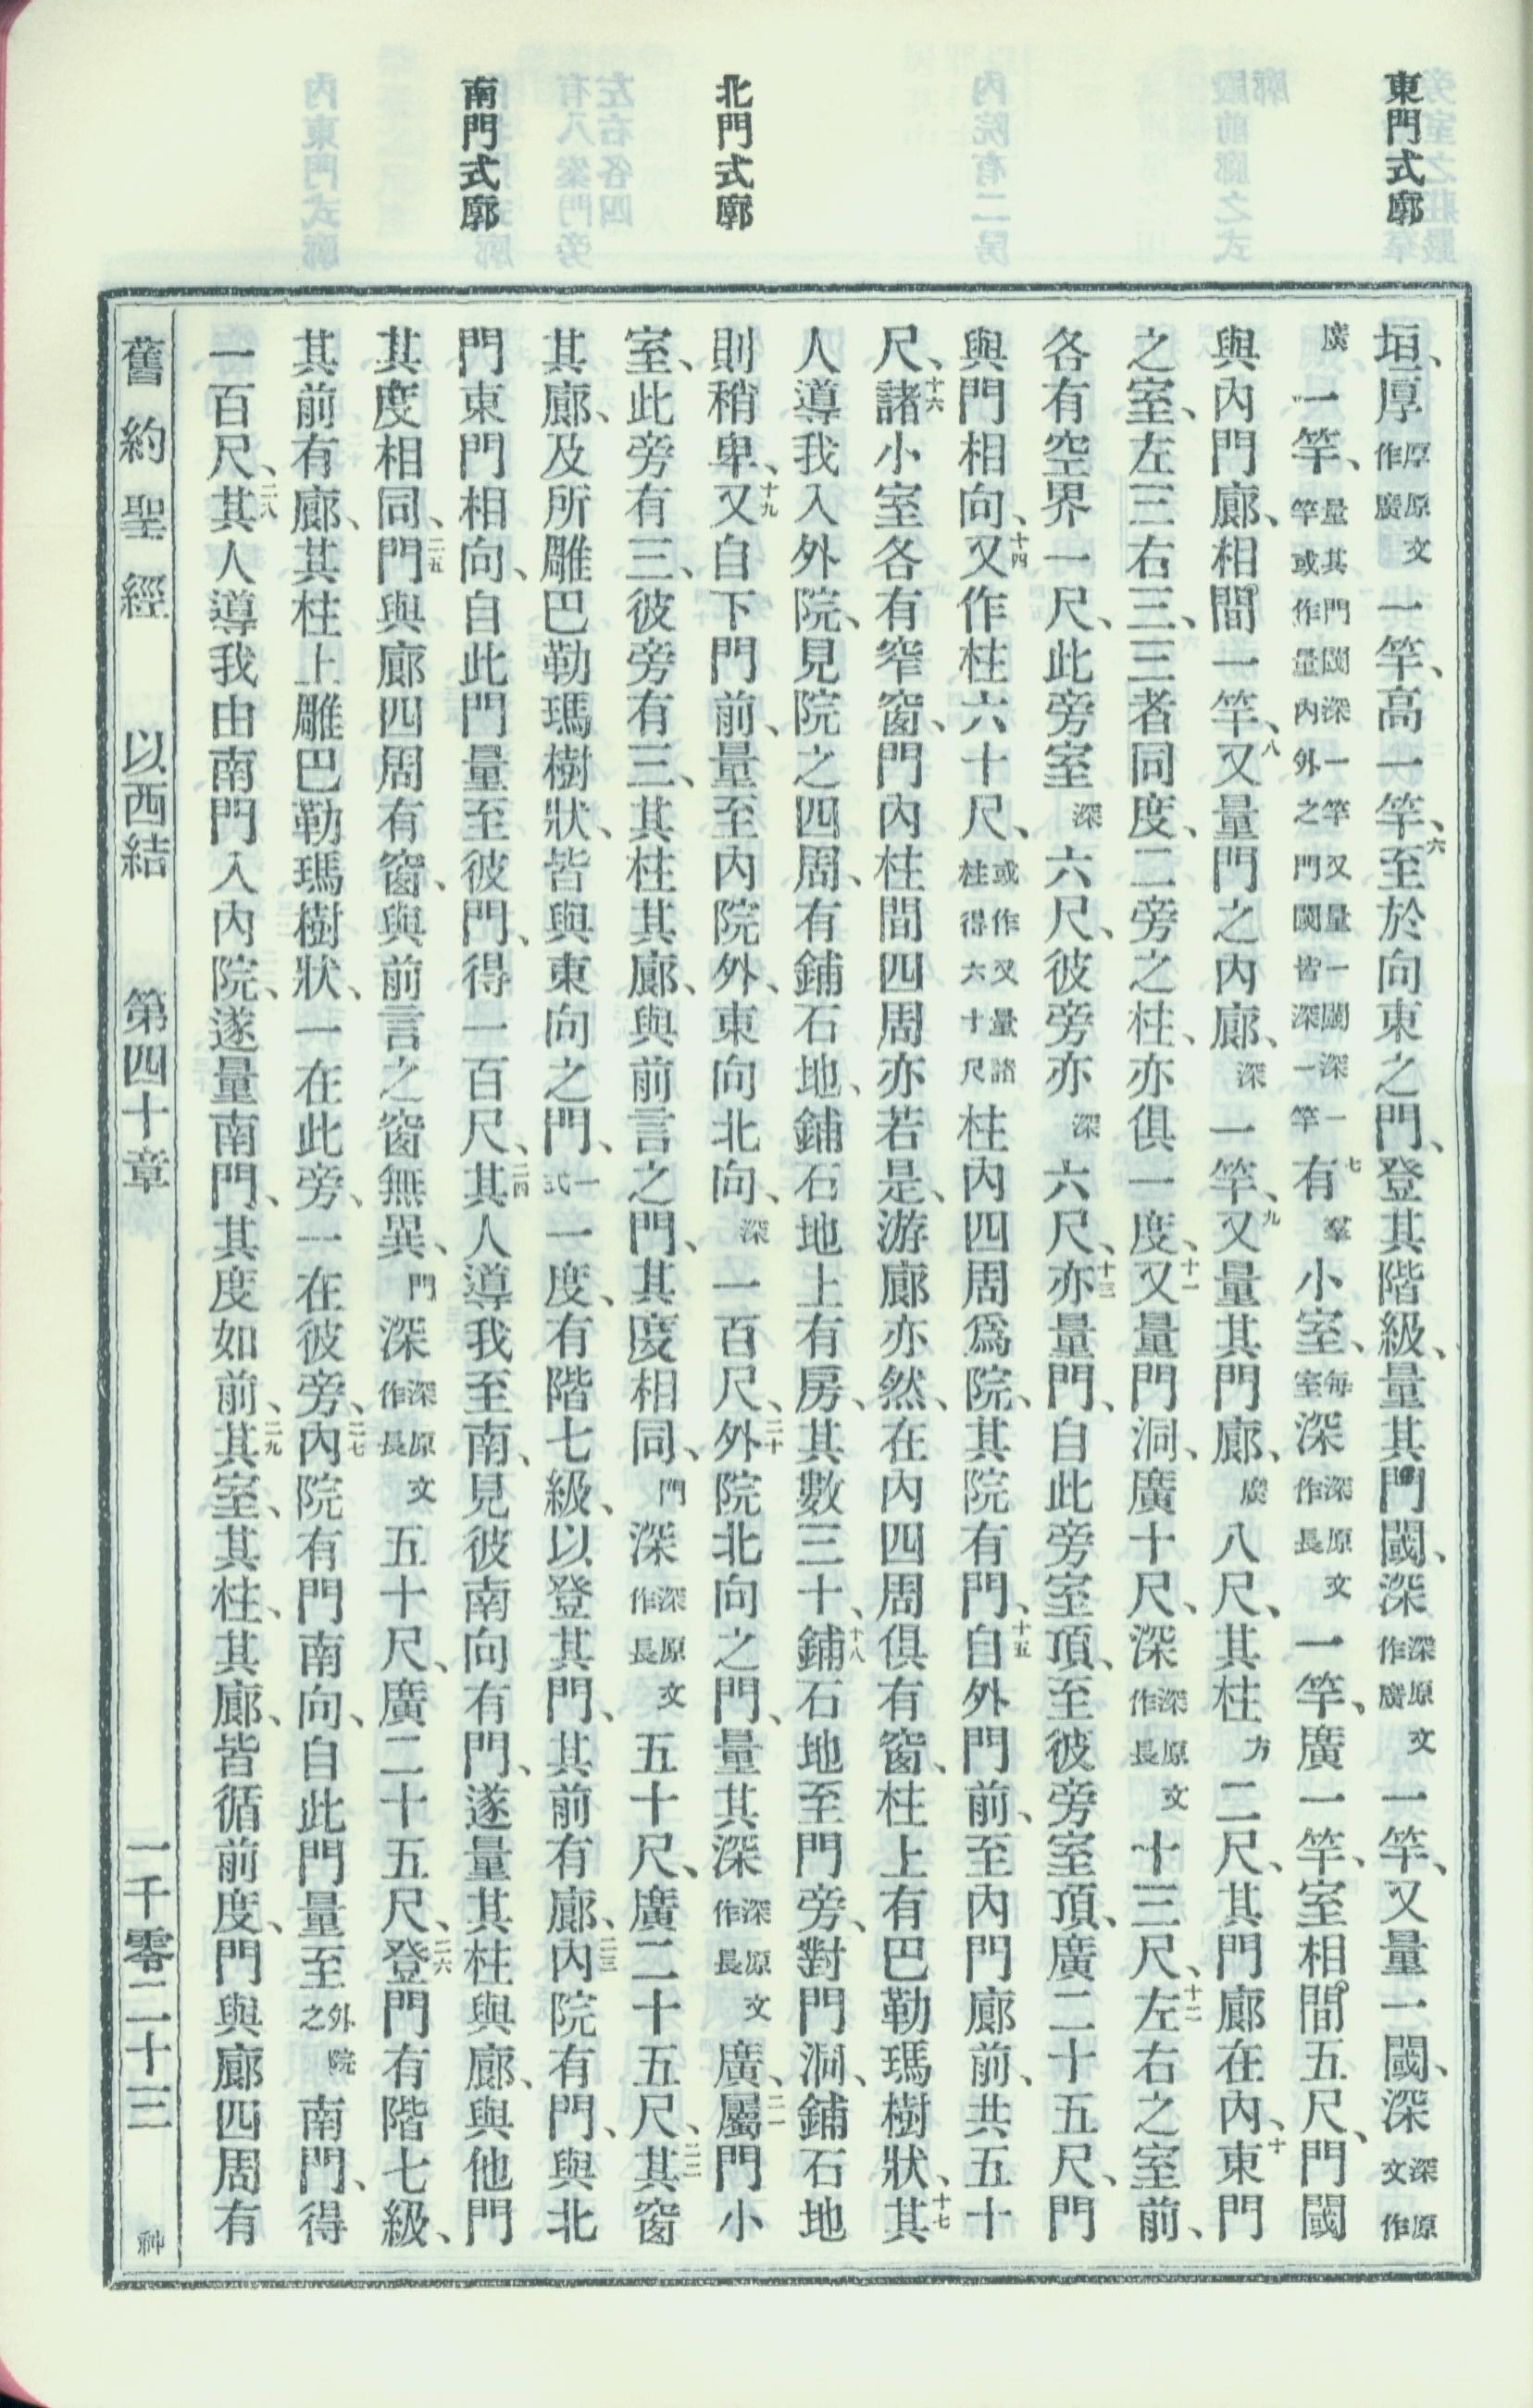 東門式廓
北門式廓
南門式廓
垣、厚原文作廣一竿、高一竿、六至於向東之門、登其階級、量其門閾、深深原文作廣一竿、又量一閾、深深原文作
廣一竿、量其門閾深一竿又量一閾深一竿或作量內外之門閾皆深一竿七有羣小室、每室深深原文作長一竿、廣一竿、室相間五尺、門閾
與內門廊、相間一竿、八又量門之內廊、深一竿、九又量其門廊、廣八尺、其柱方二尺、其門廊在內、十東門
之室、左三右三、三者同度、二旁之柱、亦俱一度、十一又量門洞、廣十尺、深深原文作長十三尺、十二左右之室前、
各有空界一尺、此旁室深六尺、彼旁亦深六尺、十三亦量門、自此旁室頂、至彼旁室頂、廣二十五尺、門
與門相向、十四又作柱六十尺、或作又量諸柱得六十尺柱內四周爲院、其院有門、十五自外門前、至內門廊前、共五十
尺、十六諸小室各有窄窗、門內柱間四周亦若是、游廊亦然、在內四周俱有窗、柱上有巴勒瑪樹狀、十七其
人導我入外院、見院之四周、有鋪石地、鋪石地上有房、其數三十、十八鋪石地至門旁、對門洞、鋪石地
則稍卑、十九又自下門前、量至內院外、東向北向、深一百尺、二十外院北向之門、量其深深原文作長廣、二一屬門小
室、此旁有三、彼旁有三、其柱其廊、與前言之門、其度相同、門深深原文作長五十尺、廣二十五尺、二二其窗
其廊、及所雕巴勒瑪樹狀、皆與東向之門、一式一度、有階七級、以登其門、其前有廊、二三內院有門、與北
門東門相向、自此門量至彼門、得一百尺、二四其人導我至南、見彼南向有門、遂量其柱與廊、與他門
其度相同、二五門與廊四周有窗、與前言之窗無異、門深深原文作長五十尺、廣二十五尺、二六登門有階七級、
其前有廊、其柱上雕巴勒瑪樹狀、一在此旁、一在彼旁、二七內院有門南向、自此門量至外院之南門、得
一百尺、二八其人導我由南門入內院、遂量南門、其度如前、二九其室、其柱、其廊、皆循前度、門與廊四周有
舊約聖經 以西結 第四十章 一千零二十三 神